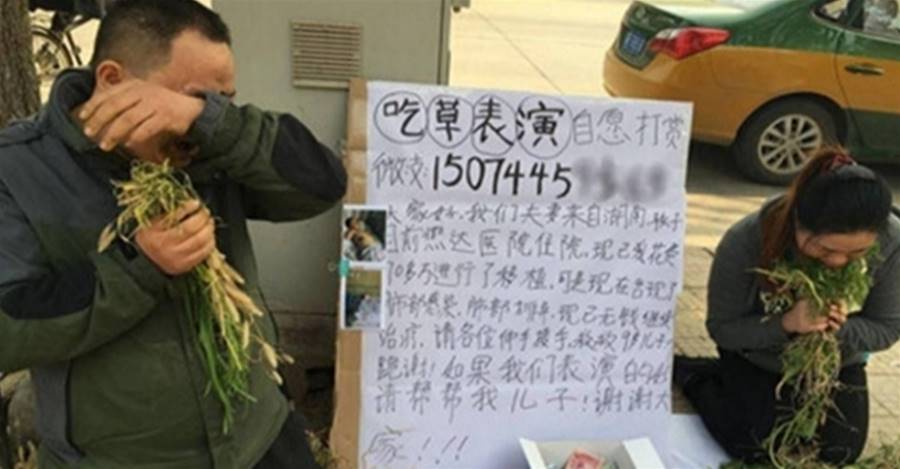 吃草表演自愿打赏
微支:1507445
大家好,我们夫妻来自湖南,孩子
目前燕达医院住院,现已发花费
多万进行了移植,可是现在出现了
肺部感染,肺部 现已无钱继续
治疗,请各位伸手援手,救救 儿子
跪谢!如果我们表演
请帮帮我儿子!谢谢大
家!!!